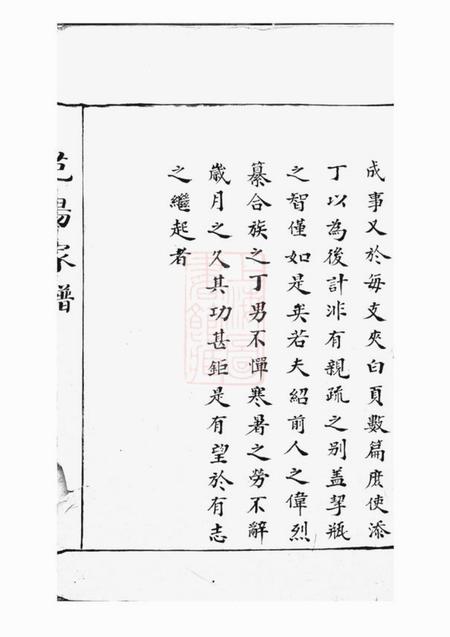 成事又於每支夾白頁數篇庶使添
丁以為後計非有親疏之別盖挈瓶
之智僅如是矣若夫紹前人之偉烈
纂合族之丁男不憚寒暑之勞不辭
歲月之久其功甚鉅是有望於有志
之繼起者
范陽家譜